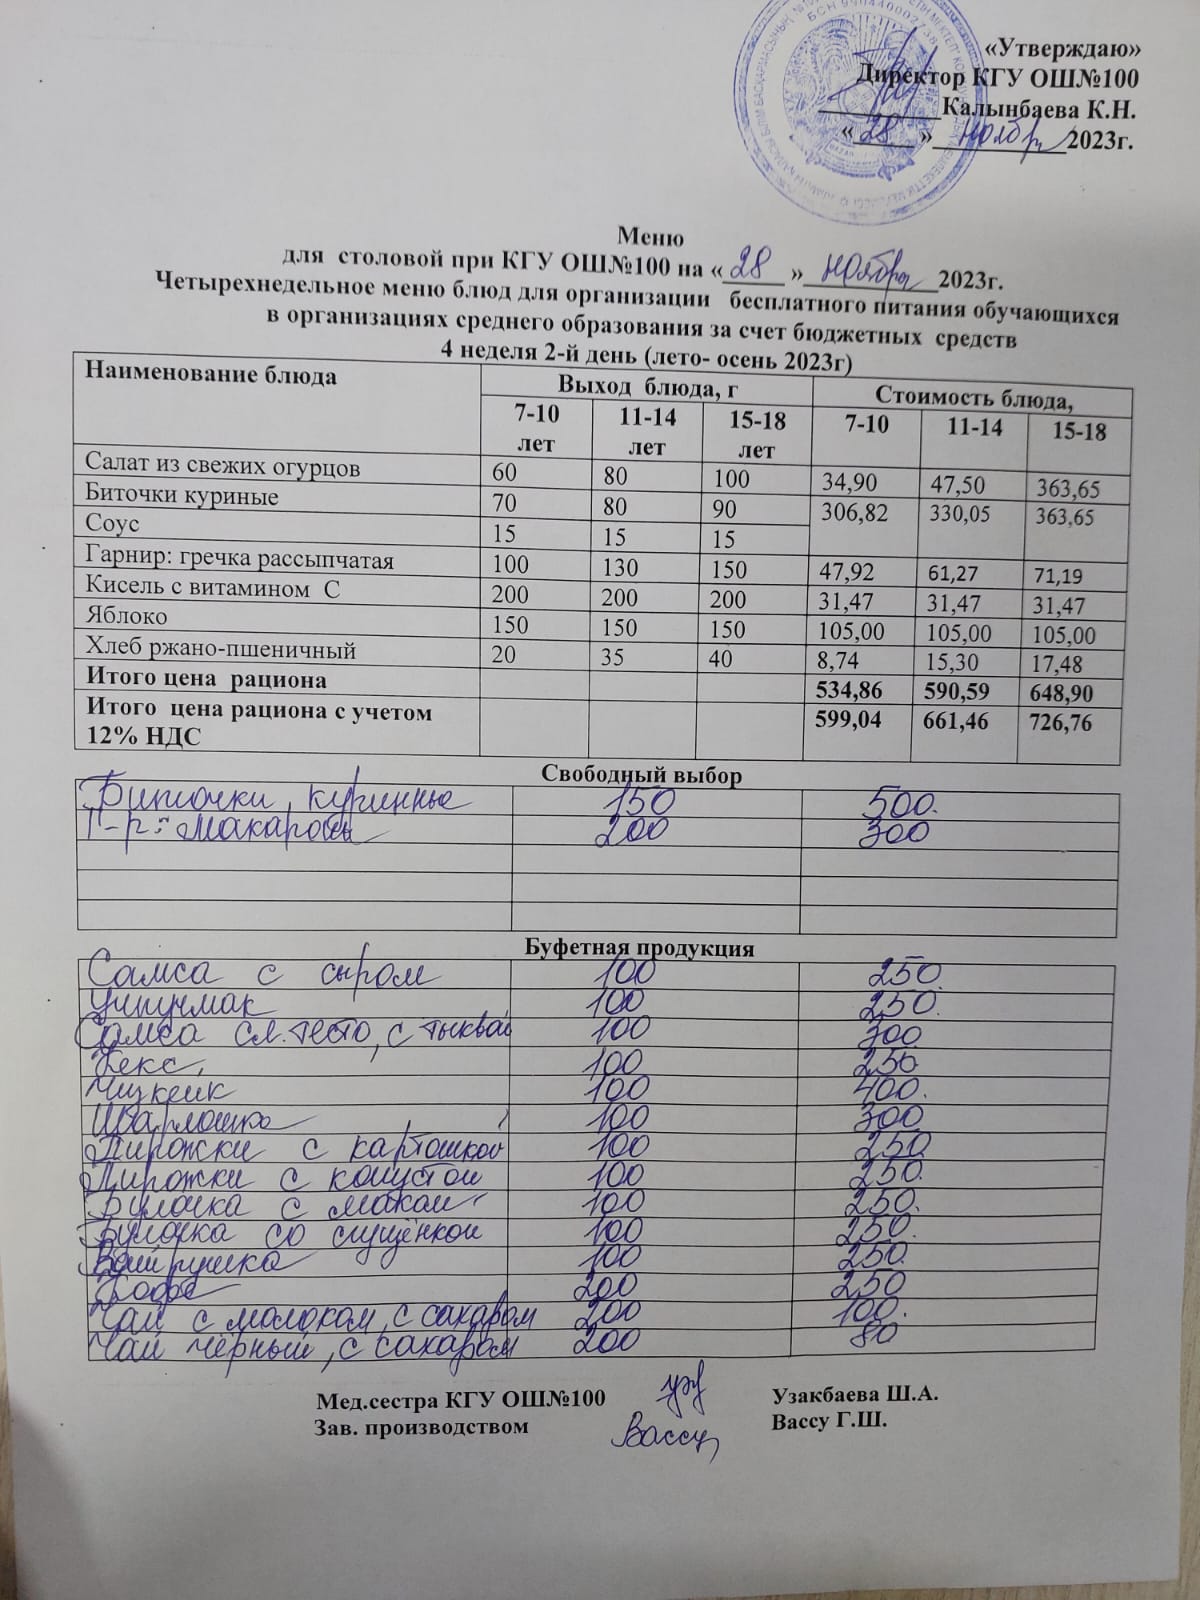 «Утверждаю»
Директор КГУ ОШ№100
Калынбаева К.Н.
«28» ноября 2023г.
БСН 990440002738
Меню
для столовой при КГУ ОШ№100 на «28» ноября 2023г.
Четырехнедельное меню блюд для организации бесплатного питания обучающихся
в организациях среднего образования за счет бюджетных средств
4 неделя 2-й день (лето- осень 2023г)
Наименование блюда Выход блюда, г Стоимость блюда,
7-10 лет 11-14 лет 15-18 лет 7-10 11-14 15-18
Салат из свежих огурцов 60 80 100 34,90 47,50 363,65
Биточки куриные 70 80 90 306,82 330,05 363,65
Соус 15 15 15
Гарнир: гречка рассыпчатая 100 130 150 47,92 61,27 71,19
Кисель с витамином С 200 200 200 31,47 31,47 31,47
Яблоко 150 150 150 105,00 105,00 105,00
Хлеб ржано-пшеничный 20 35 40 8,74 15,30 17,48
Итого цена рациона 534,86 590,59 648,90
Итого цена рациона с учетом 12% НДС 599,04 661,46 726,76
Свободный выбор
Биточки куринные 150 500.
Г-р: Макароны 200 300
Буфетная продукция
Самса с сыром 100 250.
Учпучмак 100 250.
Самса сл. тесто, с тыквой 100 300
Кекс, 100 250
Чизкеик 100 400.
100 300
Пирожки с картошкой 100 250
Пирожки с капустой 100 250.
Булочка с маком 100 250.
Булочка со сгущёнкой 100 250.
Ватрушка 100 250.
Кофе 200 250
Чай с молоком, с сахаром 200 100.
Чай чёрный, с сахаром 200 80
Мед.сестра КГУ ОШ№100 Узакбаева Ш.А.
Зав. производством Вассу Вассу Г.Ш.